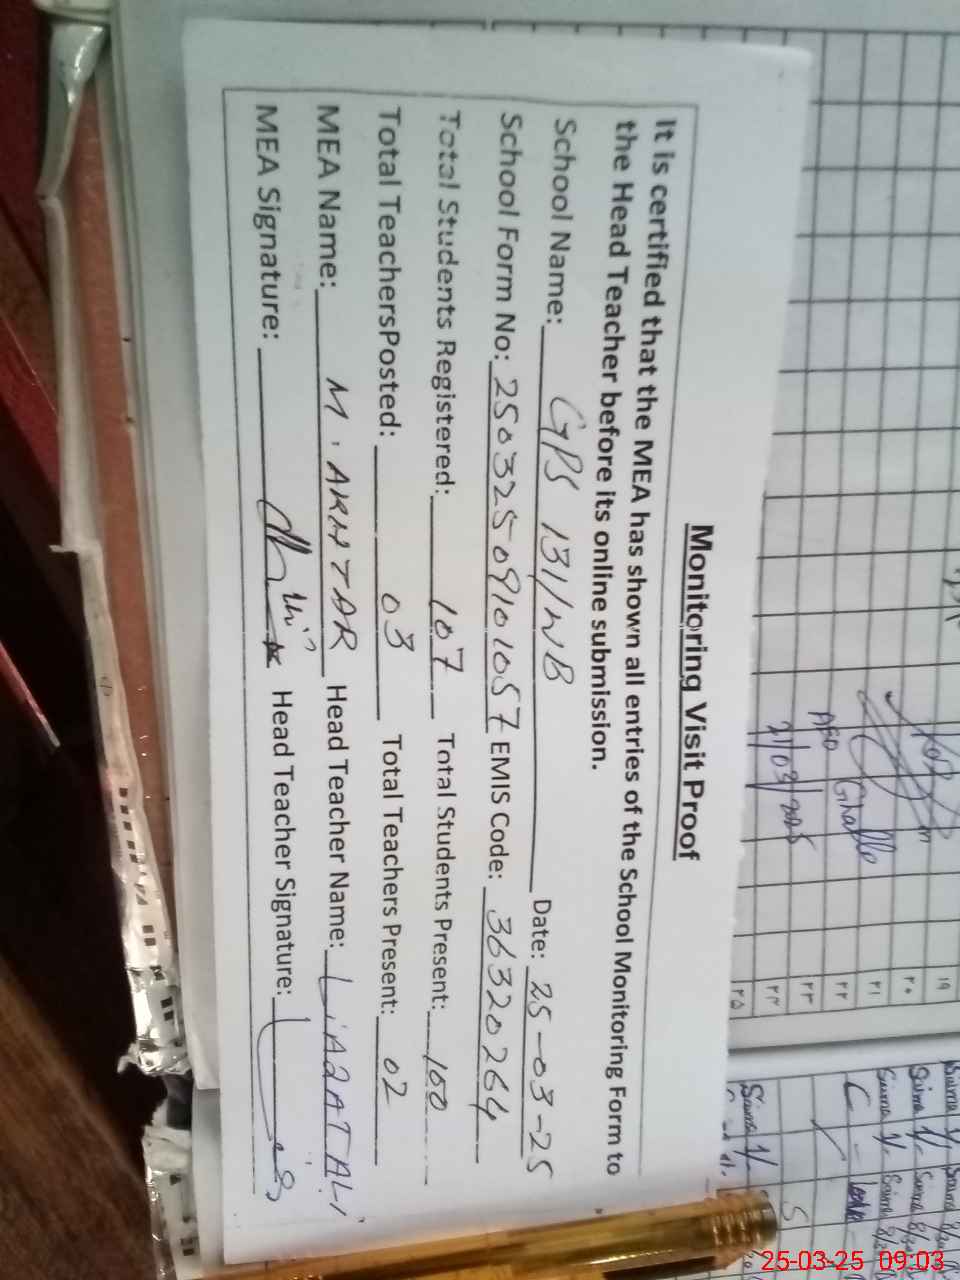 Monitoring Visit Proof
It is certified that the MEA has shown all entries of the School Monitoring Form to
the Head Teacher before its online submission.
School Name: GPS 131/WB Date: 25-03-25
School Form No: 25032509101057 EMIS Code: 36320264
Total Students Registered: 107 Total Students Present: 100
Total TeachersPosted: 03 Total Teachers Present: 02
MEA Name: M. AKHTAR Head Teacher Name: LIAQAT ALI
MEA Signature: Head Teacher Signature:
AEO
21/03/2025
١٩
٢٠
٢١
٢٢
٢٣
٢٤
٢٥
25-03-25 09:03